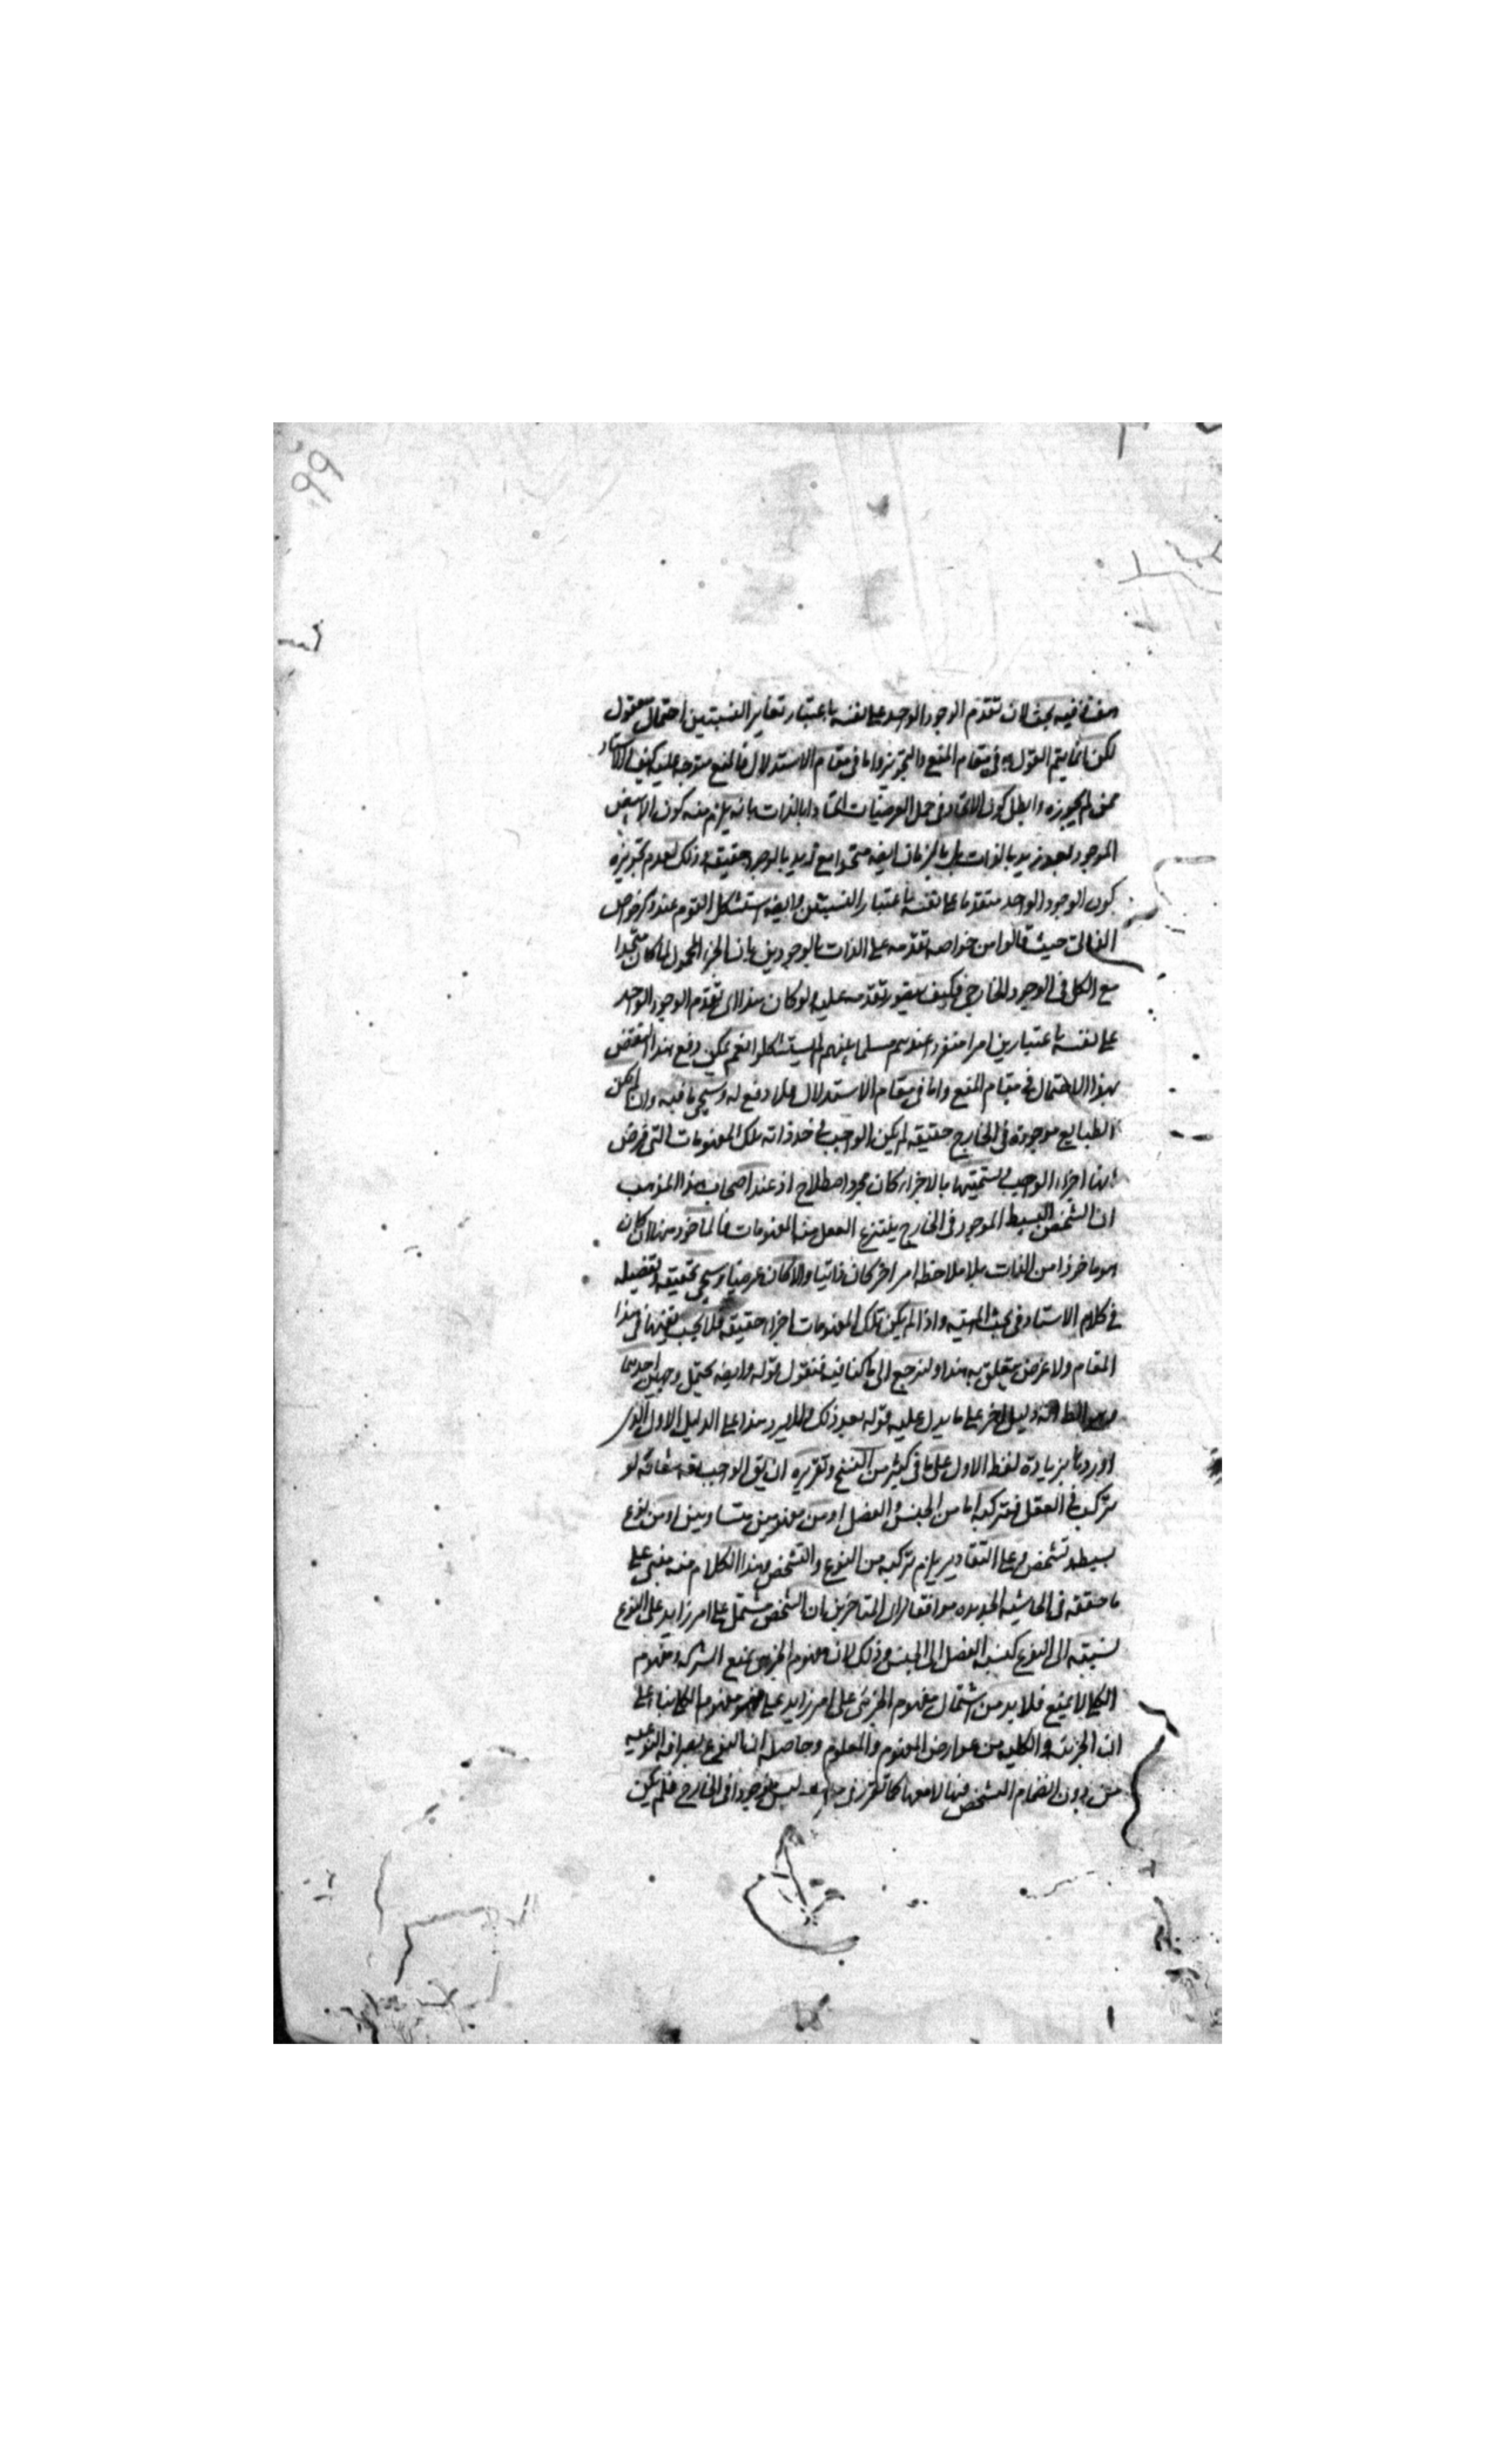 99
هف فيه بحث لان تقدم الوجود الواحد على نفسه باعتبار تغاير النسبتين احتمال معقول
لكن انما يتم القول به في مقام المنع والتجويز واما في مقام الاستدلال فالمنع متوجه عليه كيف الاستاد
ممن لم يجوزه وابطل كون الاتحاد في حمل العرضيات اتحادا بالذات بانه يلزم منه كون الابيض
الموجود بعد زيد بالذات بل بالزمان ايضا متحدا مع زيد بالوجود حقيقة وذلك لعدم تجويزه
كون الوجود الواحد متقدما على نفسه باعتبار النسبتين وايضا استشكل القوم عند ذكر خواص
الذاتي حيث قالوا من خواصه تقدمه على الذات بالوجودين بان الجزء المحمول لما كان متحدا
مع الكل في الوجود الخارجي فكيف يتصور تقدمه عليه ولو كان هذا اى تقدم الوجود الواحد
على نفسه باعتبارين امرا عندهم مسلما بينهم لم يستشكلوا نعم يمكن دفع هذا النقض
بهذا الاحتمال في مقام المنع واما في مقام الاستدلال فلا دفع له وسيجئ ما فيه وان لم يكن
الطبايع موجودة في الخارج حقيقة لم يكن الواجب في حد ذاته تلك المفهومات التي فرض
انها اجزاء الواجب وتسميتها بالاجزاء كان مجرد اصطلاح اذ عند اصحاب هذا المذهب
ان الشخص البسيط الموجود في الخارج ينتزع العقل منه المفهومات فالماخوذ منها ان كان
هو ماخوذا من الذات بلا ملاحظة امر اخر كان ذاتيا والا كان عرضيا وسيجئ تحقيقه وتفصيله
في كلام الاستاد في بحث الماهية واذا لم يكن تلك المفهومات اجزاء حقيقة فلا يجب نفيها في هذا
المقام ولا غرض يتعلق به هذا ولنرجع الى ما كنا فيه فنقول قوله وايضا يحتمل وجهين احدهما
وهو الظاهر انه دليل اخر على ما يدل عليه قوله بعد ذلك ولا يرد هذا على الدليل الاول الذى
اوردنا بزيادة لفظ الاول على ما في كثير من النسخ وتقريره ان يق الواجب تعه شانه لو
تركب في العقل فتركبه اما من الجنس والفصل او من مفهومين متساويين او من نوع
بسيط وتشخص وعلى التقادير يلزم تركبه من النوع والتشخص وهذا الكلام منه مبنى على
ما حققه في الحاشية الجديدة موافقا لراى المتاخرين ان الشخص مشتمل على امر زايد على النوع
نسبته الى النوع كنسبة الفصل الى الجنس وذلك لان مفهوم الجزئى يمنع الشركة ومفهوم
الكلى لا يمنع فلا بد من اشتمال مفهوم الجزئى على امر زايد على مفهوم الكلى بناء على
ان الجزئية والكلية من عوارض المفهوم والمعلوم وحاصله ان النوع بصرافة النوعية
من دون انضمام التشخص فيها لامعها كما تقرر في ليس موجودا في الخارج فلم يكن